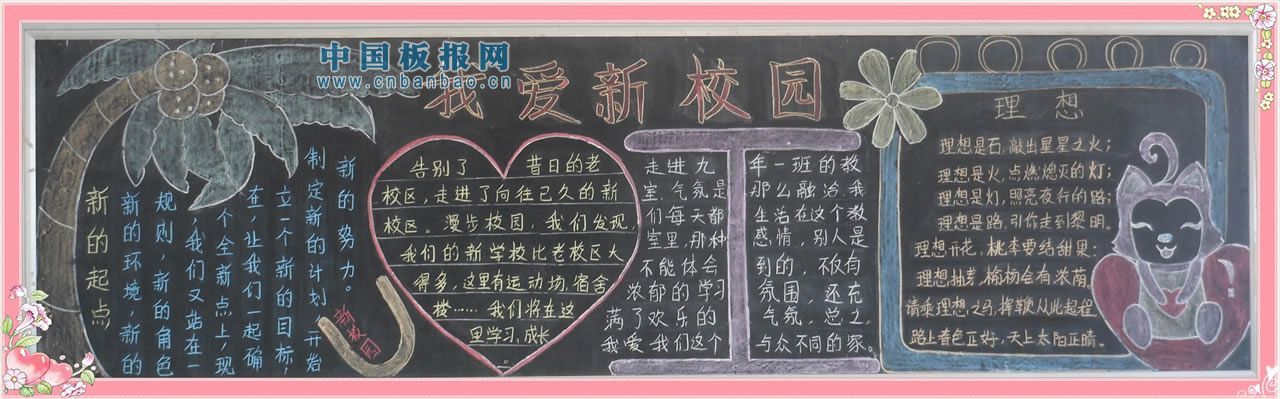 中国板报网
www.cnbanbao.cn
我爱新校园
新的起点
新的环境,新的
规则,新的角色
我们又站在一
个全新点上,现
在,让我们一起确
立一个新的目标,
制定新的计划,开始
新的努力。
新校园
告别了 昔日的老
校区,走进了向往已久的新
校区。漫步校园,我们发现,
我们的新学校比老校区大
得多,这里有运动场.宿舍
楼……我们将在这
里学习,成长
走进九 年一班的教
室,气氛是 那么融洽。我
们每天都 生活在这个教
室里,那种 感情,别人是
不能体会 到的,不仅有
浓郁的学习 氛围,还充
满了欢乐的 气氛,总之,
我爱我们这个 与众不同的家。
理想
理想是石,敲出星星之火;
理想是火,点燃熄灭的灯;
理想是灯,照亮夜行的路;
理想是路,引你走到黎明。
理想开花,桃李要结甜果;
理想抽芽,榆杨会有浓荫,
请乘理想之马,挥鞭从此起程
路上春色正好,天上太阳正晴。